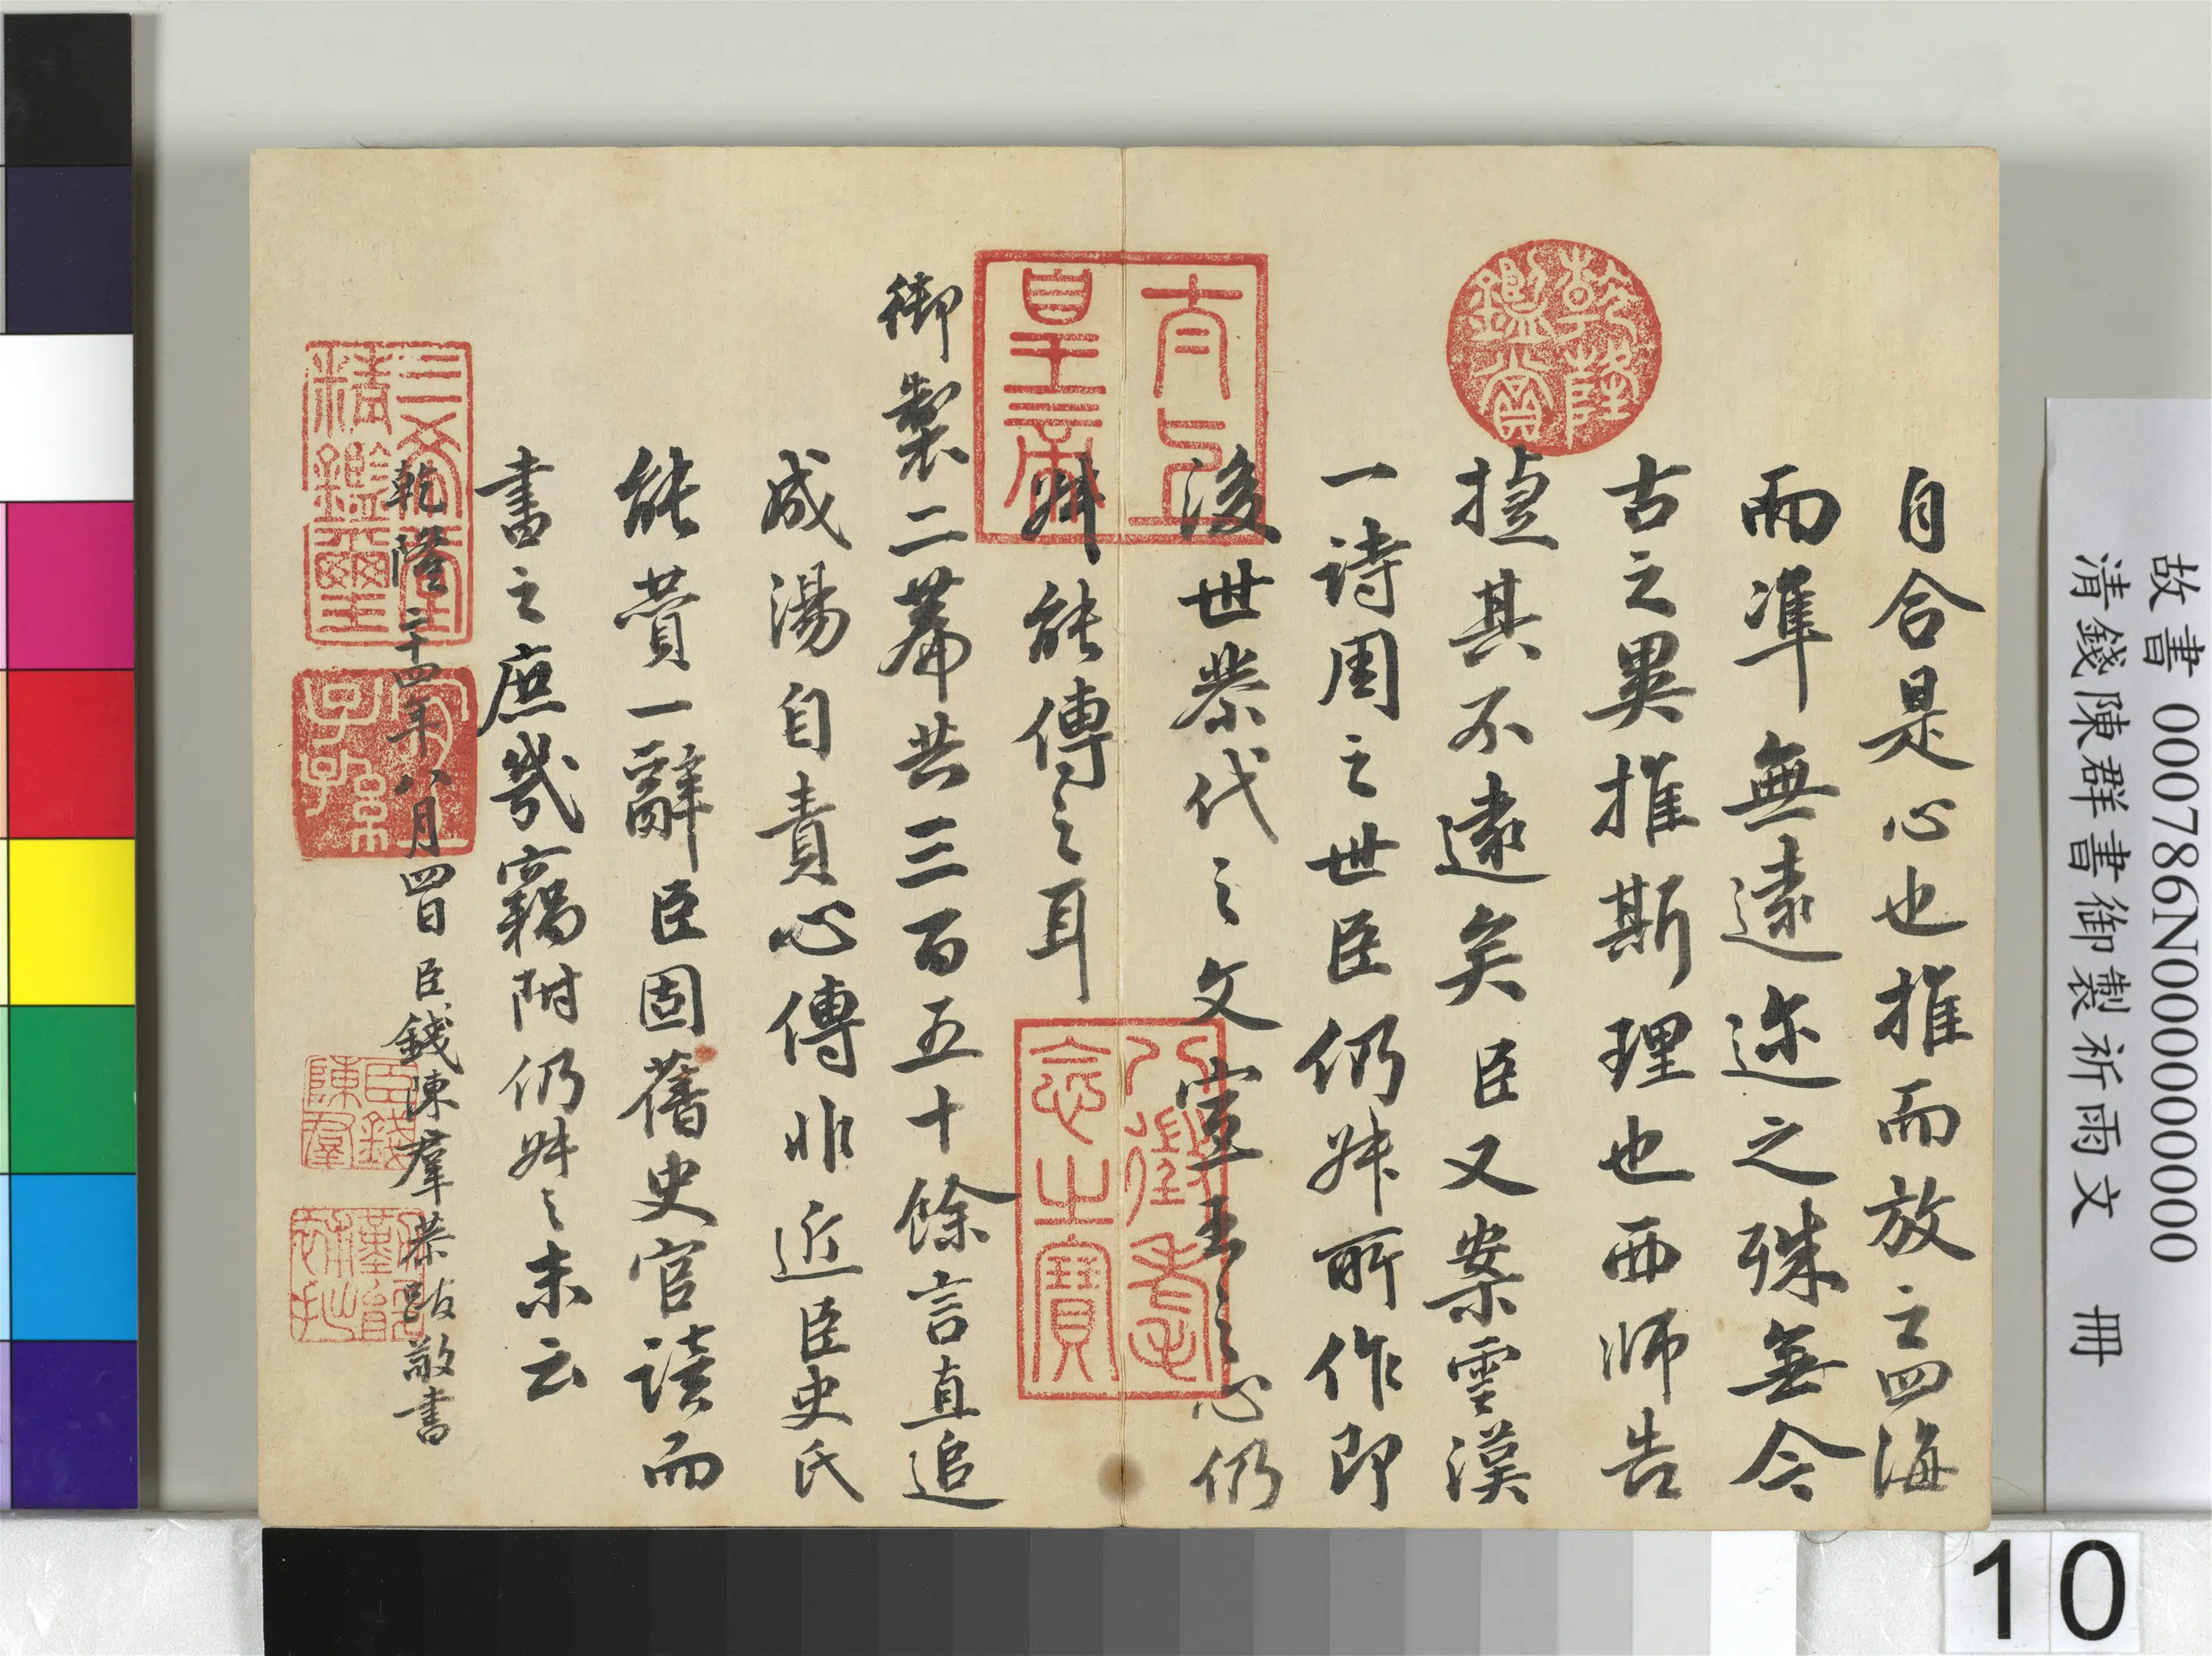 故書 000786N000000000
清錢陳群書御製祈雨文 冊
自合是心也推而放之四海
而準無遠迩之殊無今
古之異推斯理也西師告
捷其不遠矣臣又案雲漢
一詩周之世臣仍叔所作即
後世代之文宣王之心仍
叔能傳之耳
御製二篇共三百五十餘言直追
成湯自責心傳非近臣史氏
能贊一辭臣固舊史官讀而
書之庶幾竊附仍叔之末云
乾隆二十四年八月四日臣錢陳羣恭跋敬書
乾隆鑑賞
太上皇帝
八徵耄念之寶
三希堂精鑑璽
宜子孫
臣錢陳羣
10